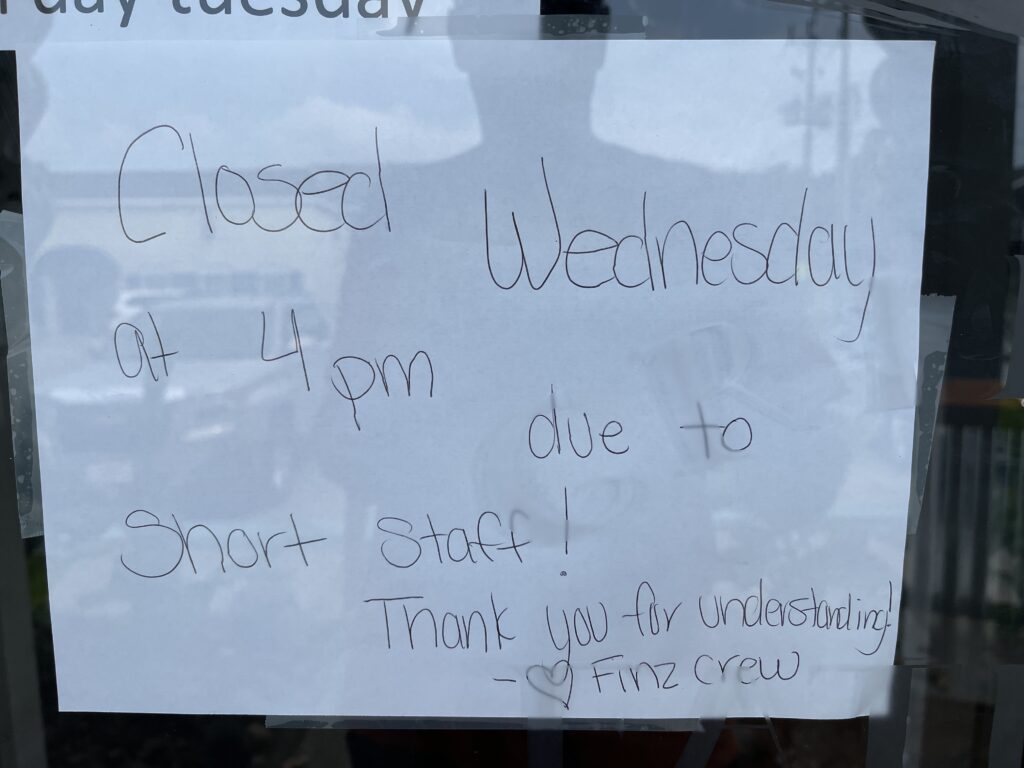 day tuesday
Closed Wednesday
at 4 pm
due to
Short Staff!
Thank you for understanding!
- ♡ Finz crew